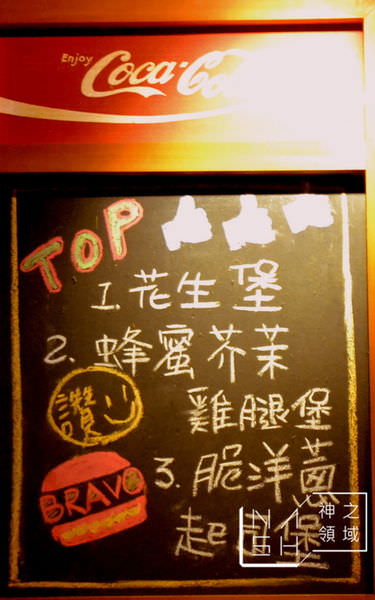 Enjoy
Coca-Co
TOP
1. 花生堡
2. 蜂蜜芥茉
雞腿堡
讚
BRAVO
3. 脆洋蔥
起 堡
神之
領域